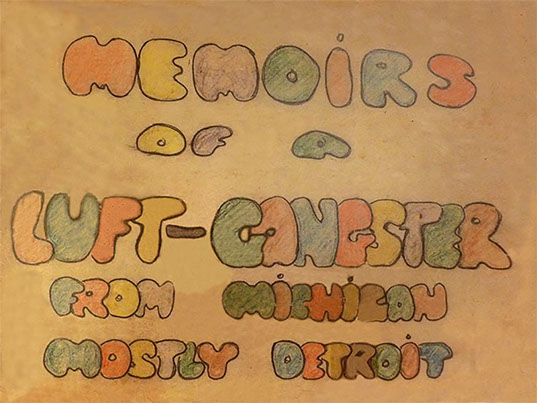 MEMOIRS
OF A
LUFT-GANGSTER
FROM MICHIGAN
MOSTLY DETROIT